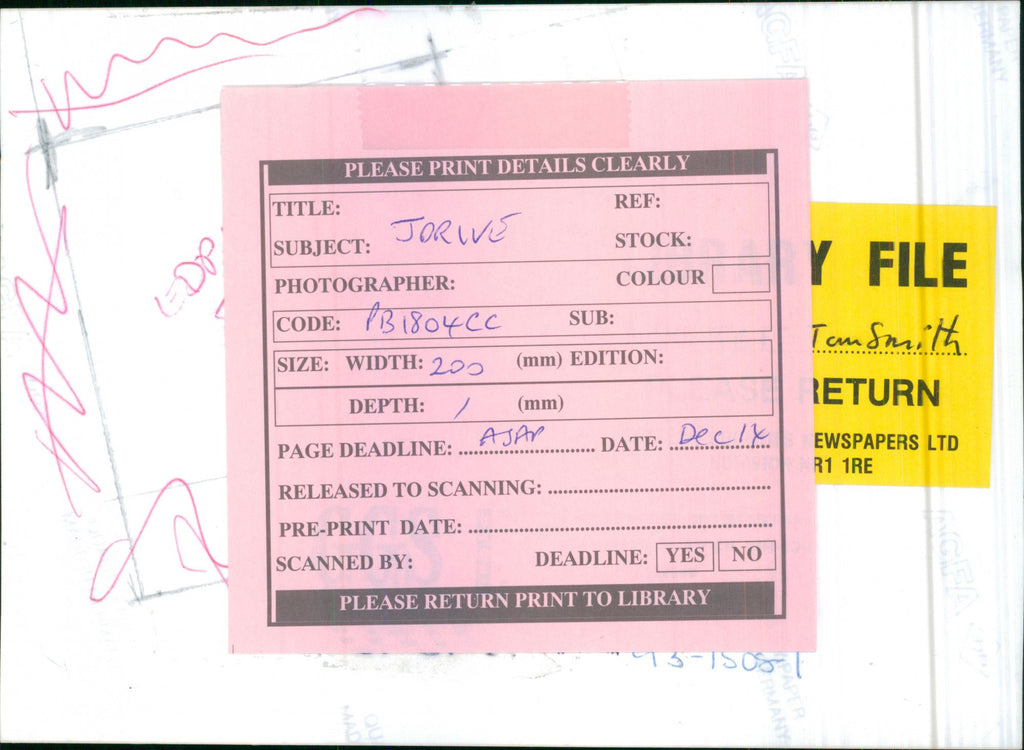 PLEASE PRINT DETAILS CLEARLY
TITLE: REF:
SUBJECT: JORWE STOCK:
PHOTOGRAPHER: COLOUR
CODE: PB1804CC SUB:
SIZE: WIDTH: 200 (mm) EDITION:
DEPTH: / (mm)
PAGE DEADLINE: ASAP DATE: Dec 14
RELEASED TO SCANNING:
PRE-PRINT DATE:
SCANNED BY: DEADLINE: YES NO
PLEASE RETURN PRINT TO LIBRARY
Y FILE
Ian Smith
RETURN
EWSPAPERS LTD
R1 1RE
93-1508-1